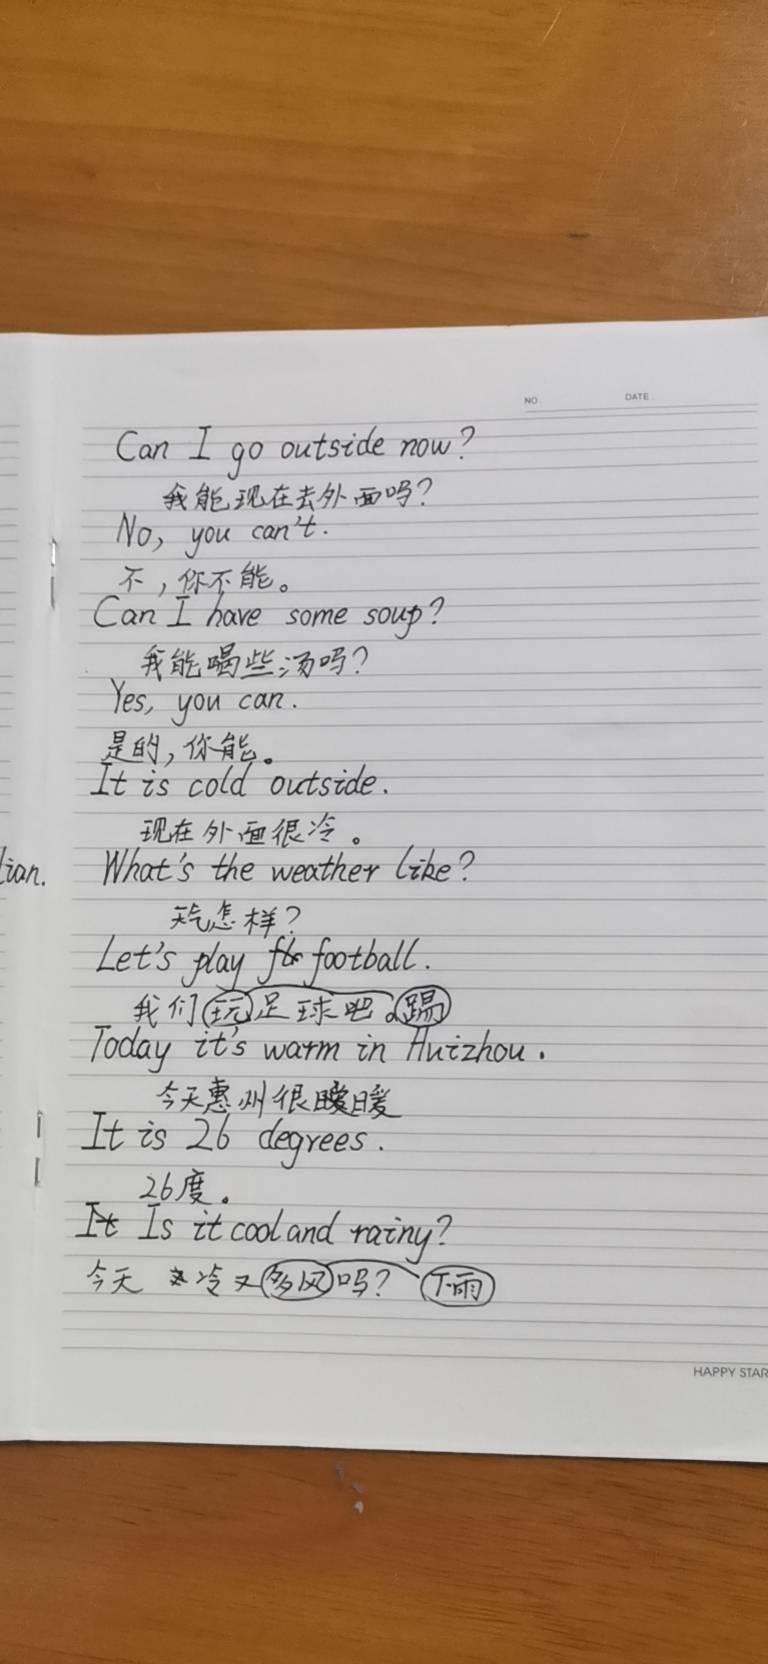 NO.
DATE.
Can I go outside now?
我能现在去外面吗?
No, you can't.
不,你不能。
Can I have some soup?
我能喝些汤吗?
Yes, you can.
是的,你能。
It is cold outside.
现在外面很冷。
lian.
What's the weather like?
天气怎样?
Let's play football.
我们玩足球吧。踢
Today it's warm in Huizhou.
今天惠州很暖暖
It is 26 degrees.
26度。
It Is it cool and rainy?
今天 冷又多风吗? 下雨
HAPPY STAR